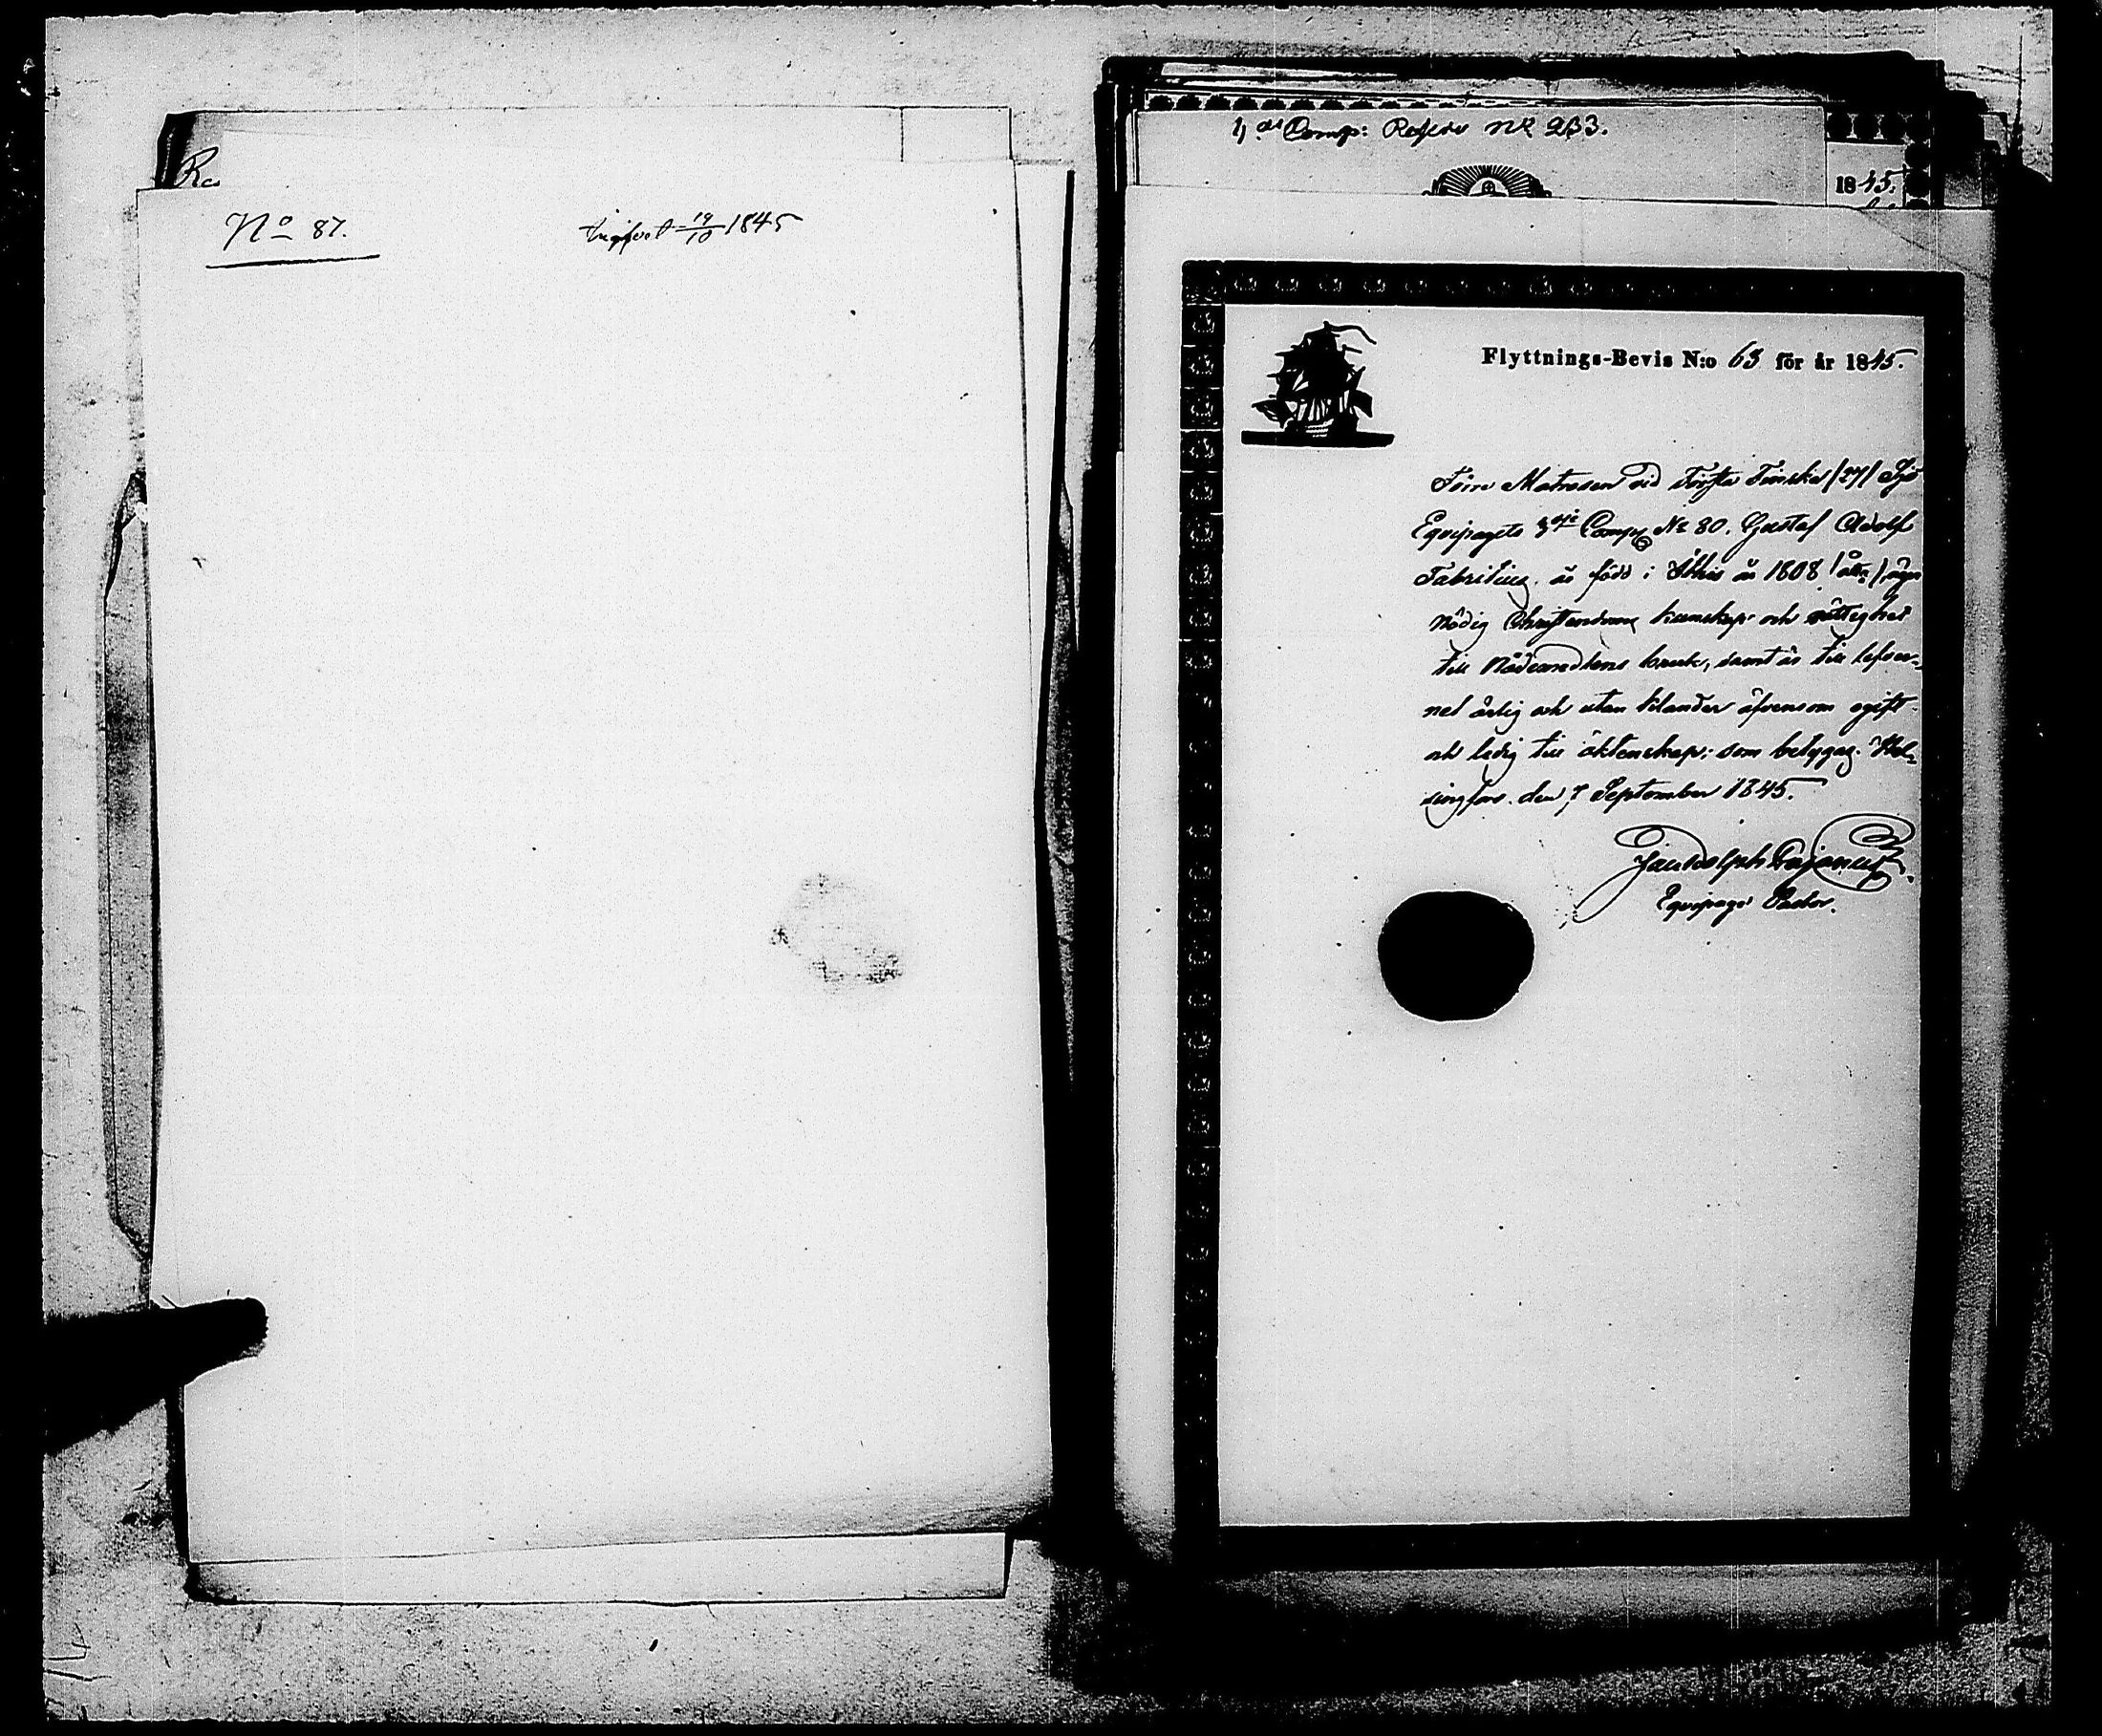 No 87.
Ingifvet 19/10 1845
4de Comp: Reserv No 233.
1845.
Flyttnings-Bevis N:o 63 för år 1845.
Förre Matrosen vid Första Finska /27/ Sjö
Equipagets 3dje Comp No 80. Gustaf Adolf
Fabritius. är född i Åbo år 1808 /åtta/, äger
nödig Christendoms kunskap och rättighet
till Nådemedlens bruk, samt är till lefver-
net ärlig och utan klander äfvensom ogift
och ledig till äktenskap; som betygas. Hel-
singfors. den 7 September 1845.
Equipage Pastor.